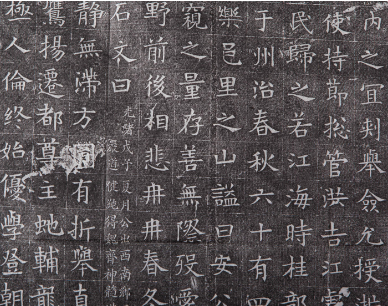 內之宜刾舉僉允授洪
使持節捴管洪吉江虔
民歸之若江海時桂部
于州治春秋六十有四
樂邑里之山謚曰安公
窺之量存善無隱
野前後相悲冉冉春冬
石文曰
光緒戊子夏月公出西南鄉
得起齊神髓
靜無滯方圓有折舉直
鷹揚遷都尊主虵輔龍
極人倫終始優學登朝